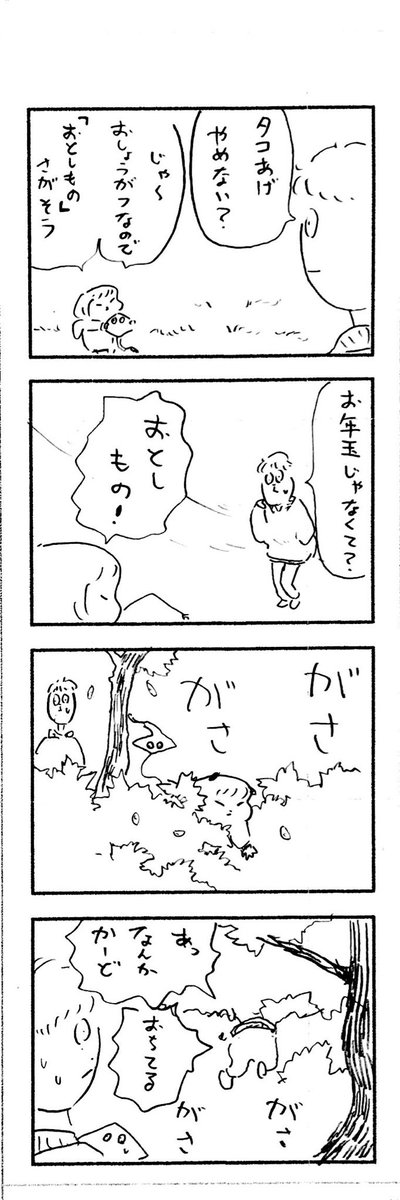 タコあげ
やめない?
じゃ〜
おしょうがつなので
「おとしもの」
さがそう
お年玉じゃなくて?
おとし
もの!
がさ
がさ
あっ
なんか
かーど
おちてる
がさ
がさ